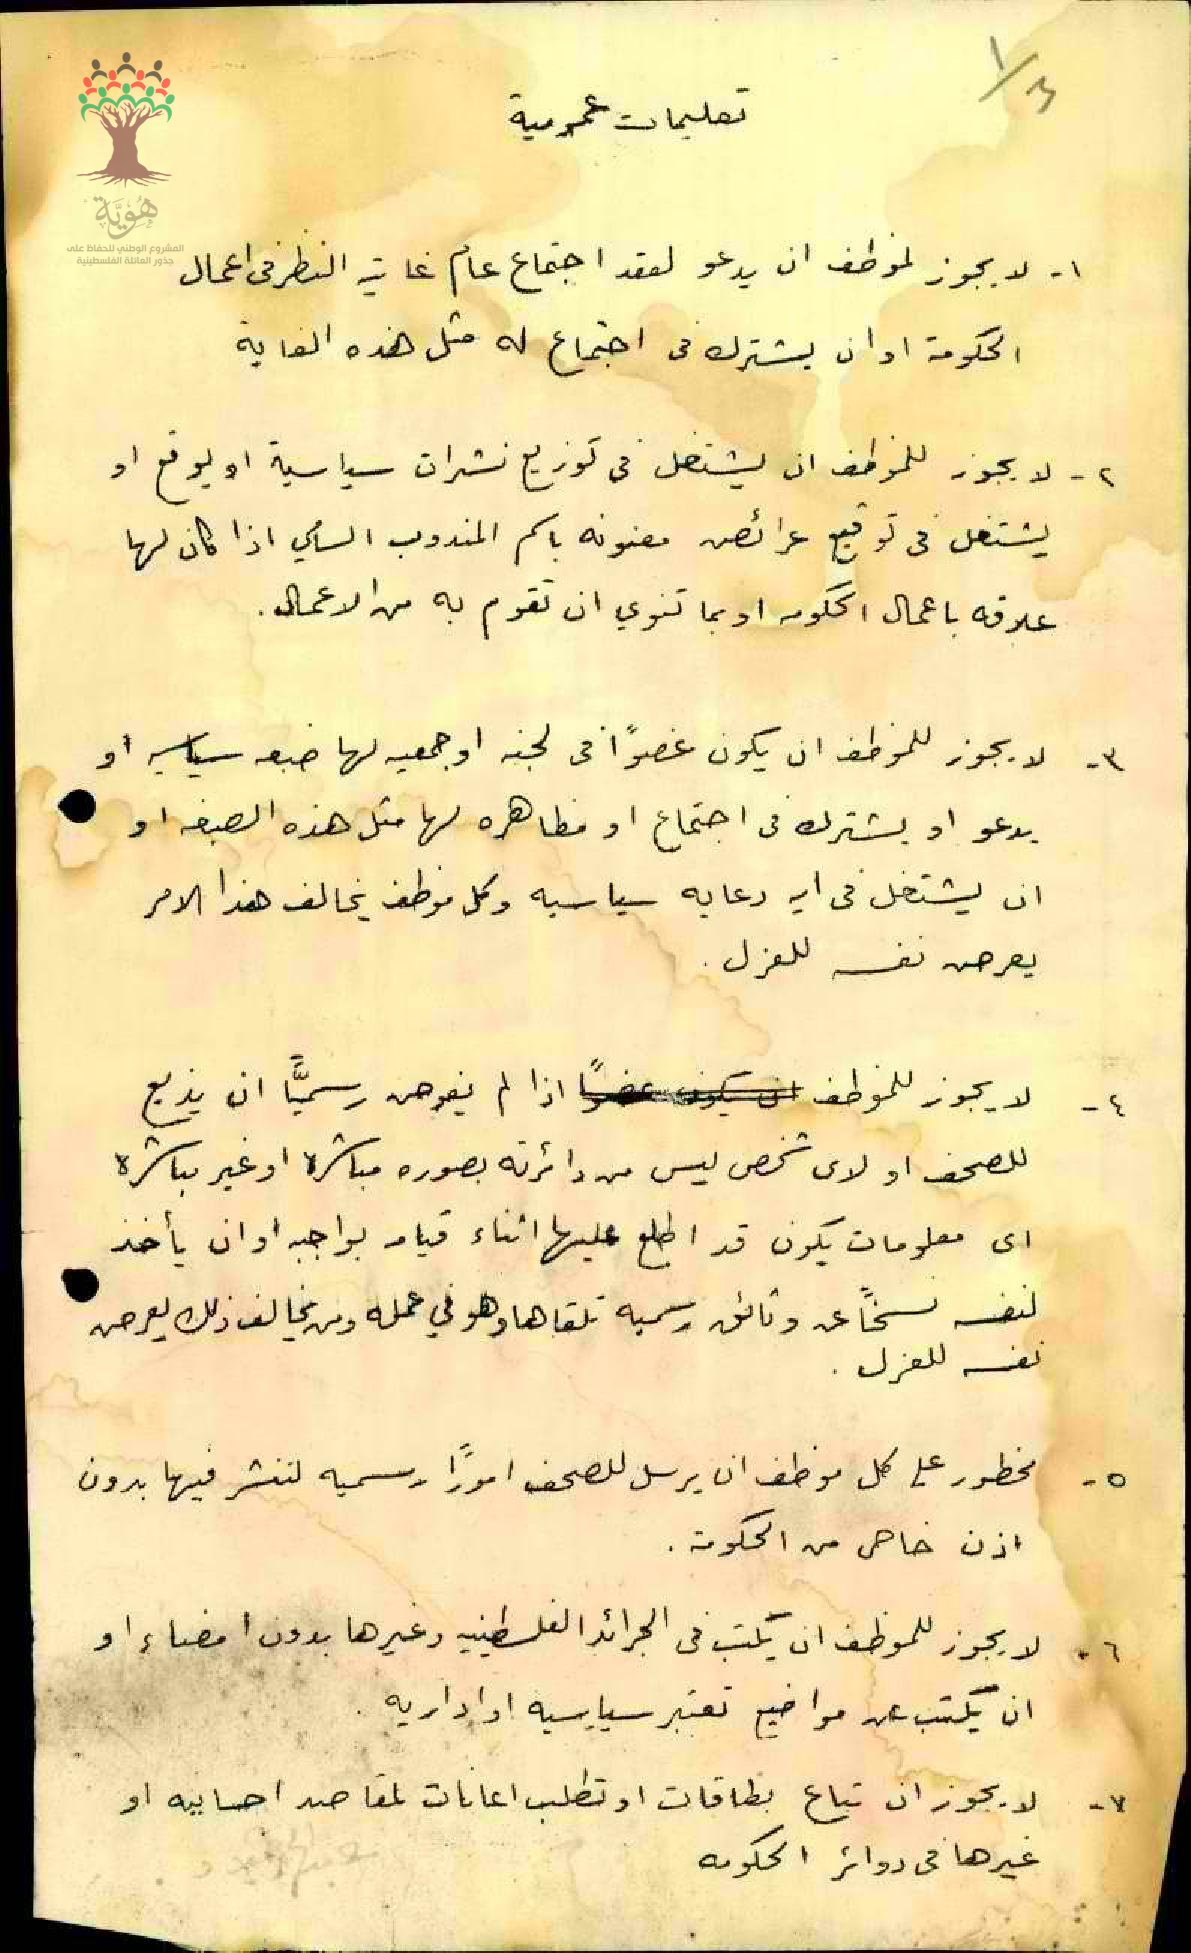 ١/٣
تعليمات عمومية
هُوِيَّة
المشروع الوطني للحفاظ على
جذور العائلة الفلسطينية
١- لا يجوز لموظف ان يدعو لعقد اجتماع عام غايته النظر في اعمال
الحكومة او ان يشترك في اجتماع له مثل هذه الغاية
٢- لا يجوز للموظف ان يشتغل في توزيع نشرات سياسية او يوقع او
يشتغل في توقيع عرائض معنونه باسم المندوب السامي اذا كان لها
علاقه باعمال الحكومه او بما تنوي ان تقوم به من الاعمال.
٣- لا يجوز للموظف ان يكون عضوًا في لجنه او جمعيه لها صبغه سياسيه او
يدعو او يشترك في اجتماع او مظاهره لها مثل هذه الصبغه او
ان يشتغل في ايه دعايه سياسيه وكل موظف يخالف هذا الامر
يعرض نفسه للعزل.
٤- لا يجوز للموظف ان يكون عضوًا اذا لم يفوض رسميًّا ان يذيع
للصحف او لاى شخص ليس من دائرته بصوره مباشرة او غير مباشرة
اى معلومات يكون قد اطلع عليها اثناء قيامه بواجبه او ان يأخذ
لنفسه نسخًا عن وثائق رسميه تلقاها وهو في عمله ومن يخالف ذلك يعرض
نفسه للعزل.
٥- محظور على كل موظف ان يرسل للصحف امورًا رسميه لتنشر فيها بدون
اذن خاص من الحكومة.
٦- لا يجوز للموظف ان يكتب في الجرائد الفلسطينيه وغيرها بدون امضاء او
ان يكتب عن مواضيع تعتبر سياسيه او اداريه.
٧- لا يجوز ان تباع بطاقات او تطلب اعانات لمقاصد احسانيه او
غيرها في دوائر الحكومه